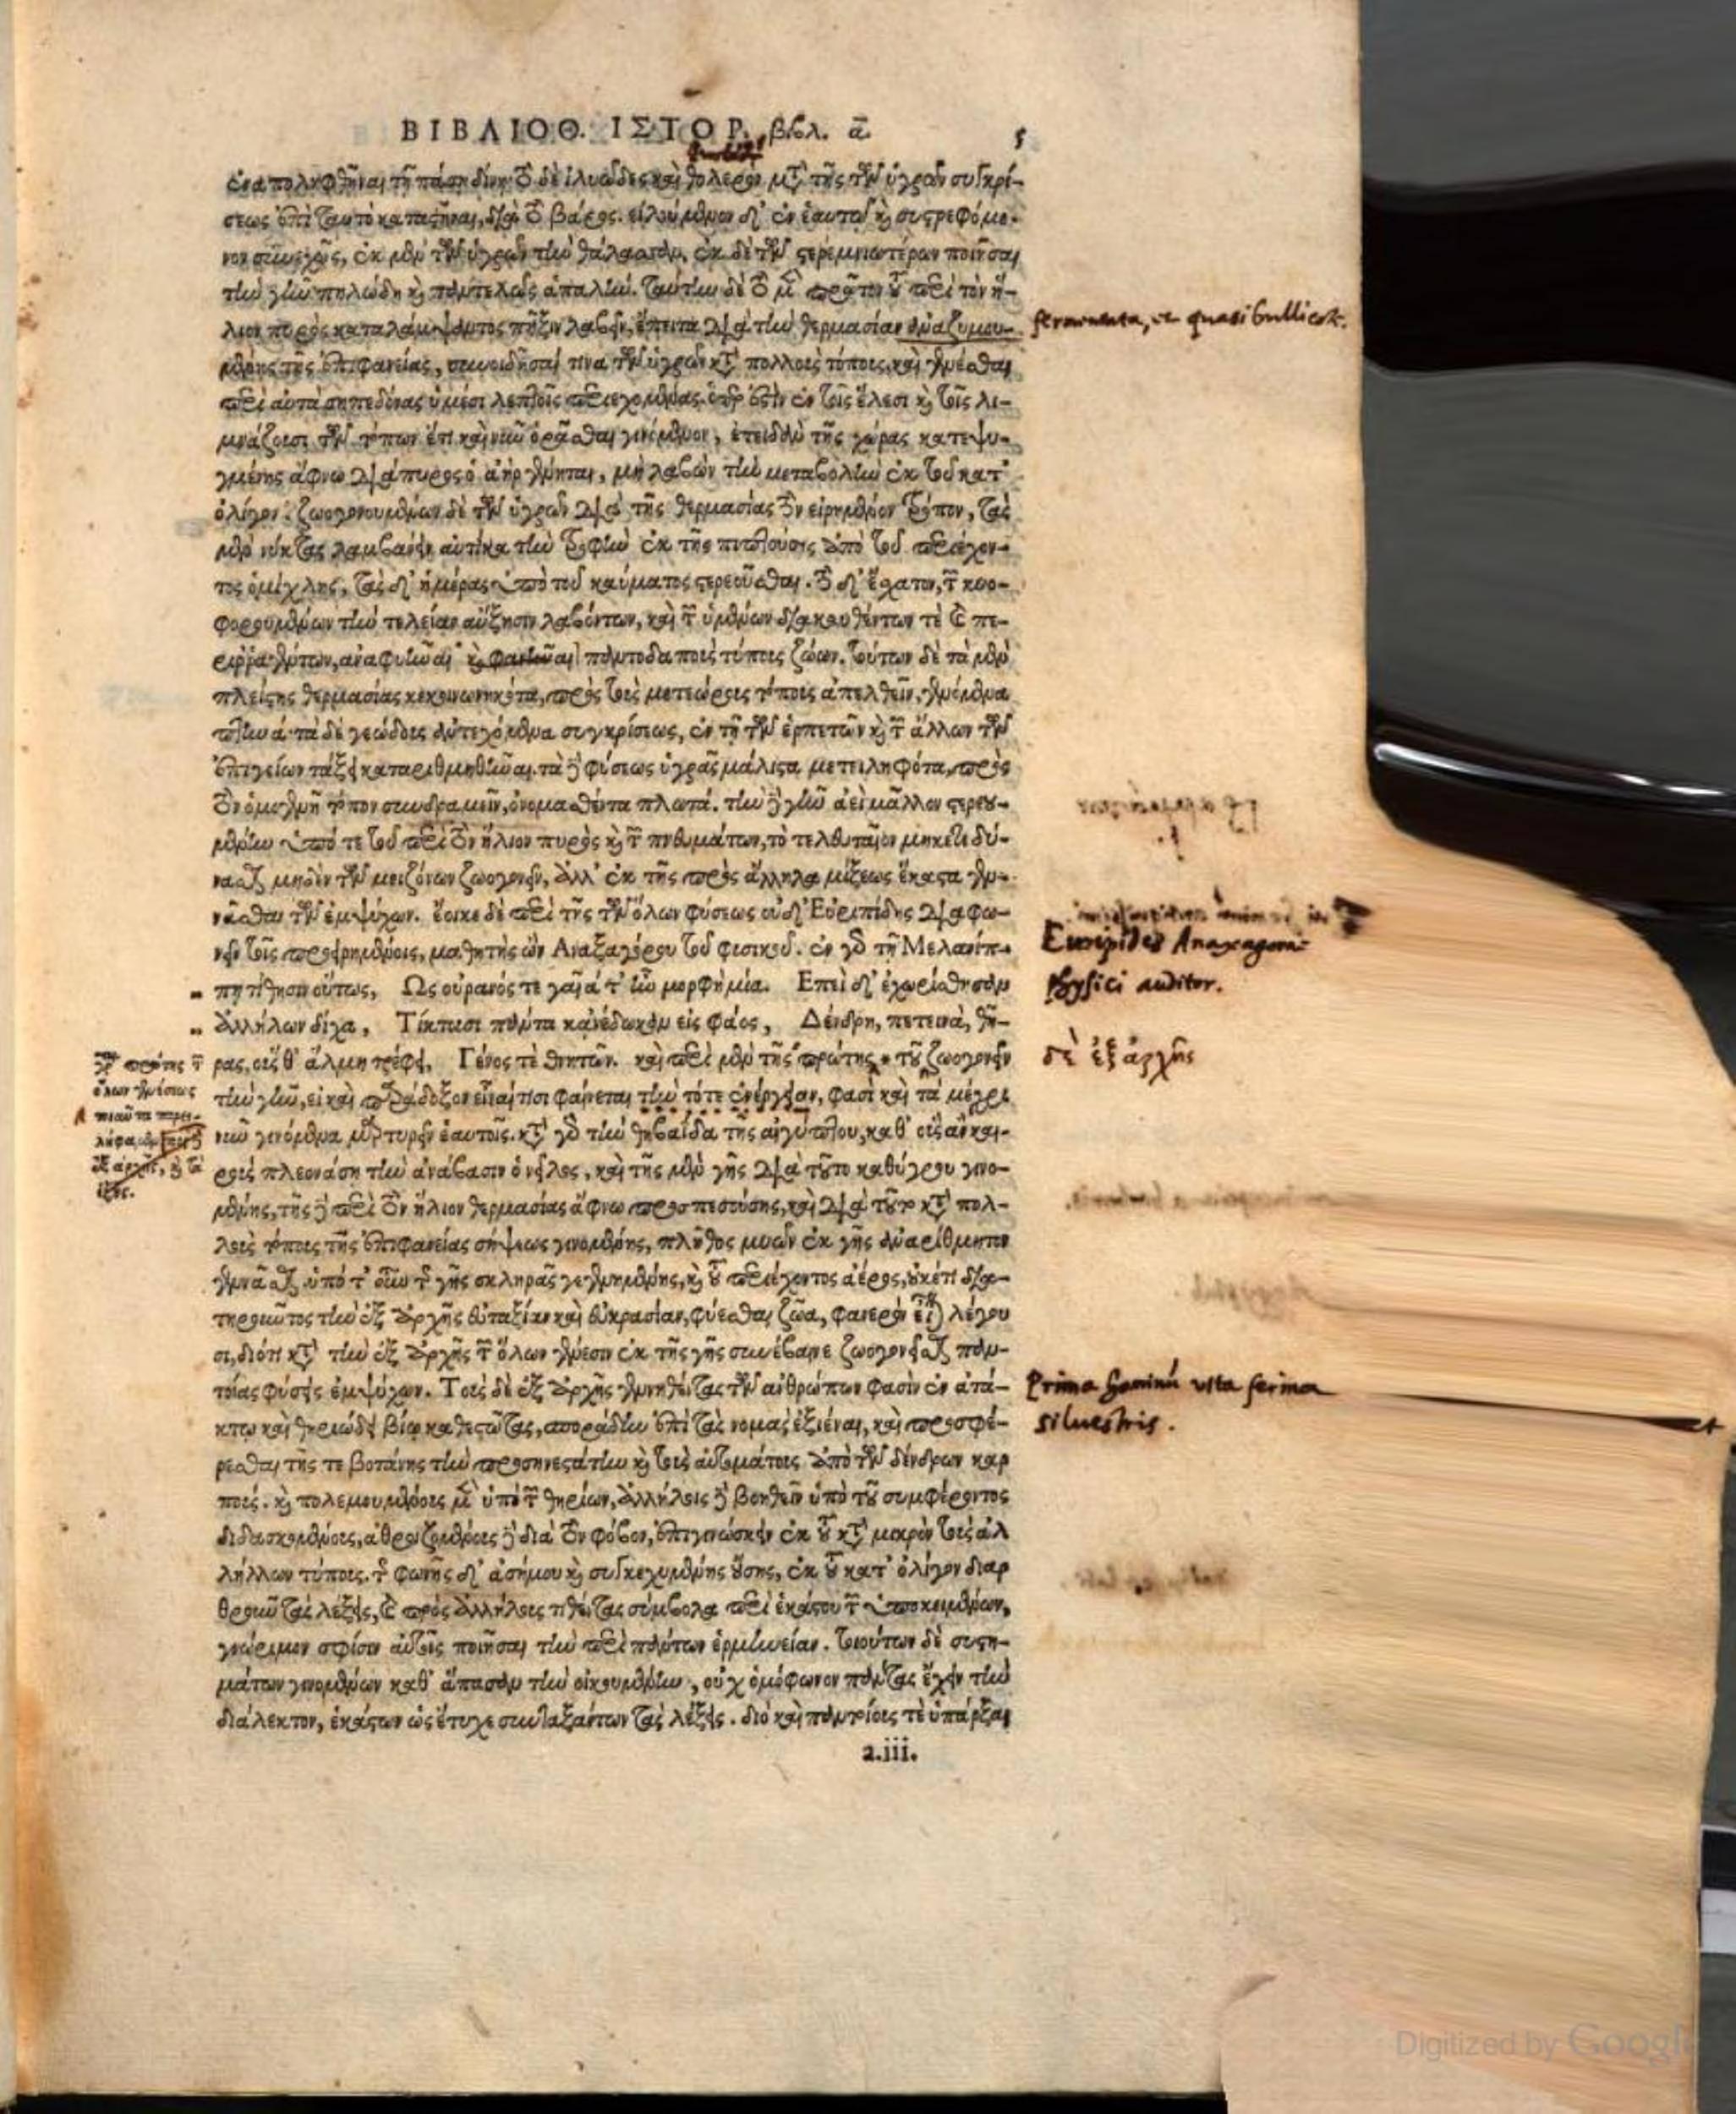 ΒΙΒΛΙΟΘ. ΙΣΤΟΡ. βιβλ. α.
5
ἐναποληφθῆναι τῇ πάσῃ δίνῃ· τὸ δὲ ἰλυῶδες καὶ θολερὸν μετὰ τῆς τῶν ὑγρῶν συγκρί-
σεως ἐπὶ ταυτὸ καταστῆναι, διὰ τὸ βάρος. εἰλούμενον δ' ἐν ἑαυτῷ καὶ συστρεφόμε-
νον συνεχῶς, ἐκ μὲν τῶν ὑγρῶν τὴν θάλασσαν, ἐκ δὲ τῶν στερεμνιωτέρων ποιῆσαι
τὴν γῆν πηλώδη καὶ παντελῶς ἁπαλήν. ταύτην δὲ τὸ μὲν πρῶτον τοῦ περὶ τὸν ἥ-
λιον πυρὸς καταλάμψαντος πῆξιν λαβεῖν, ἔπειτα διὰ τὴν θερμασίαν ἀναζυμου-
μένης τῆς ἐπιφανείας, συνοιδῆσαί τινα τῶν ὑγρῶν κατὰ πολλοὺς τόπους, καὶ γενέσθαι
περὶ αὐτὰ σηπεδόνας ὑμέσι λεπτοῖς περιεχομένας. ὅπερ ἐστὶν ἐν τοῖς ἕλεσι καὶ τοῖς λι-
μνάζουσι τῶν τόπων ἔτι καὶ νῦν ὁρᾶσθαι γινόμενον, ἐπειδὰν τῆς χώρας κατεψυ-
γμένης ἄφνω διάπυρος ὁ ἀὴρ γένηται, μὴ λαβὼν τὴν μεταβολὴν ἐκ τοῦ κατ'
ὀλίγον. ζωογονουμένων δὲ τῶν ὑγρῶν διὰ τῆς θερμασίας τὸν εἰρημένον τρόπον, τὰς
μὲν νύκτας λαμβάνειν αὐτίκα τὴν τροφὴν ἐκ τῆς πιπτούσης ἀπὸ τοῦ περιέχον-
τος ὁμίχλης, τὰς δ' ἡμέρας ὑπὸ τοῦ καύματος στερεοῦσθαι. τὸ δ' ἔσχατον, τῶν κυο-
φορουμένων τὴν τελείαν αὔξησιν λαβόντων, καὶ τῶν ὑμένων διακαυθέντων τε καὶ πε-
ριρραγέντων, ἀναφυῆναι καὶ φανῆναι παντοδαποὺς τύπους ζώων. τούτων δὲ τὰ μὲν
πλείστης θερμασίας κεκοινωνηκότα, πρὸς τοὺς μετεώρους τόπους ἀπελθεῖν, γενόμενα
πτηνά· τὰ δὲ γεώδους ἀντεχόμενα συγκρίσεως, ἐν τῇ τῶν ἑρπετῶν καὶ τῶν ἄλλων τῶν
ἐπιγείων τάξει καταριθμηθῆναι. τὰ δὲ φύσεως ὑγρᾶς μάλιστα μετειληφότα, πρὸς
τὸν ὁμογενῆ τόπον συνδραμεῖν, ὀνομασθέντα πλωτά. τὴν δὲ γῆν ἀεὶ μᾶλλον στερεου-
μένην ὑπό τε τοῦ περὶ τὸν ἥλιον πυρὸς καὶ τῶν πνευμάτων, τὸ τελευταῖον μηκέτι δύ-
νασθαι μηδὲν τῶν μειζόνων ζωογονεῖν, ἀλλ' ἐκ τῆς πρὸς ἄλληλα μίξεως ἕκαστα γεν-
νᾶσθαι τῶν ἐμψύχων. ἔοικε δὲ περὶ τῆς τῶν ὅλων φύσεως οὐδ' Εὐριπίδης διαφω-
νεῖν τοῖς προειρημένοις, μαθητὴς ὢν Αναξαγόρου τοῦ φυσικοῦ. ἐν γὰρ τῇ Μελανίπ-
πῃ τίθησιν οὕτως, Ως οὐρανός τε γαῖά τ' ἦν μορφὴ μία. Επεὶ δ' ἐχωρίσθησαν
ἀλλήλων δίχα, Τίκτουσι πάντα κἀνέδωκαν εἰς φάος, Δένδρη, πετεινὰ, θῆ-
ρας, οὕς θ' ἅλμη τρέφει, Γένος τὲ θνητῶν. καὶ περὶ μὲν τῆς πρώτης τοῦ ζωογονεῖν
τὴν γῆν, εἰ καὶ παράδοξον εἶναί τισι φαίνεται τὴν τότε ἐνέργειαν, φασὶ καὶ τὰ μέχρι
νῦν γινόμενα μαρτυρεῖν ἑαυτοῖς. κατὰ γὰρ τὴν θηβαΐδα τῆς αἰγύπτου, καθ' οὓς ἂν και-
ροὺς πλεονάσῃ τὴν ἀνάβασιν ὁ νεῖλος, καὶ τῆς μὲν γῆς διὰ τοῦτο καθύγρου γινο-
μένης, τῆς δὲ περὶ τὸν ἥλιον θερμασίας ἄφνω προσπεσούσης, καὶ διὰ τοῦτο κατὰ πολ-
λοὺς τόπους τῆς ἐπιφανείας σήψεως γινομένης, πλῆθος μυῶν ἐκ γῆς ἀναρίθμητον
γεννᾶσθαι. ὑπό τ' οὖν τῆς γῆς σκληρᾶς γεγενημένης, καὶ τοῦ περιέχοντος ἀέρος, οὐκέτι δια-
τηροῦντος τὴν ἐξ ἀρχῆς εὐταξίαν καὶ εὐκρασίαν, φύεσθαι ζῶα, φανερόν λέγου
σι, διότι κατὰ τὴν ἐξ ἀρχῆς τῶν ὅλων γένεσιν ἐκ τῆς γῆς συνέβαινε ζωογονεῖσθαι παν-
τοίας φύσεις ἐμψύχων. Τοὺς δὲ ἐξ ἀρχῆς γεννηθέντας τῶν ἀνθρώπων φασὶν ἐν ἀτά-
κτῳ καὶ θηριώδει βίῳ καθεστῶτας, σποράδην ἐπὶ τὰς νομὰς ἐξιέναι, καὶ προσφέ-
ρεσθαι τῆς τε βοτάνης τὴν προσηνεστάτην καὶ τοὺς αὐτομάτους ἀπὸ τῶν δένδρων καρ
πούς. καὶ πολεμουμένους μὲν ὑπὸ τῶν θηρίων, ἀλλήλοις δὲ βοηθεῖν ὑπὸ τοῦ συμφέροντος
διδασκομένους, ἀθροιζομένους δὲ διὰ τὸν φόβον, ἐπιγινώσκειν ἐκ τοῦ κατὰ μικρὸν τοὺς ἀλ
λήλλων τύπους. τῆς φωνῆς δ' ἀσήμου καὶ συγκεχυμένης οὔσης, ἐκ τοῦ κατ' ὀλίγον διαρ
θροῦν τὰς λέξεις, καὶ πρὸς ἀλλήλους τιθέντας σύμβολα περὶ ἑκάστου τῶν ὑποκειμένων,
γνώριμον σφίσιν αὐτοῖς ποιῆσαι τὴν περὶ πάντων ἑρμηνείαν. τοιούτων δὲ συστη-
μάτων γινομένων καθ' ἅπασαν τὴν οἰκουμένην, οὐχ ὁμόφωνον πάντας ἔχειν τὴν
διάλεκτον, ἑκάστων ὡς ἔτυχε συνταξάντων τὰς λέξεις. διὸ καὶ παντοίους τὲ ὑπάρξαι
a.iii.
fermentata, et quasi bullient.
Euripides Anaxagorae
physici auditor.
δὲ ἐξ ἀρχῆς
πρώτης τῶν
ὅλων γενέσεως
Prima hominū vita ferina et
silvestris.
Digitized by Google